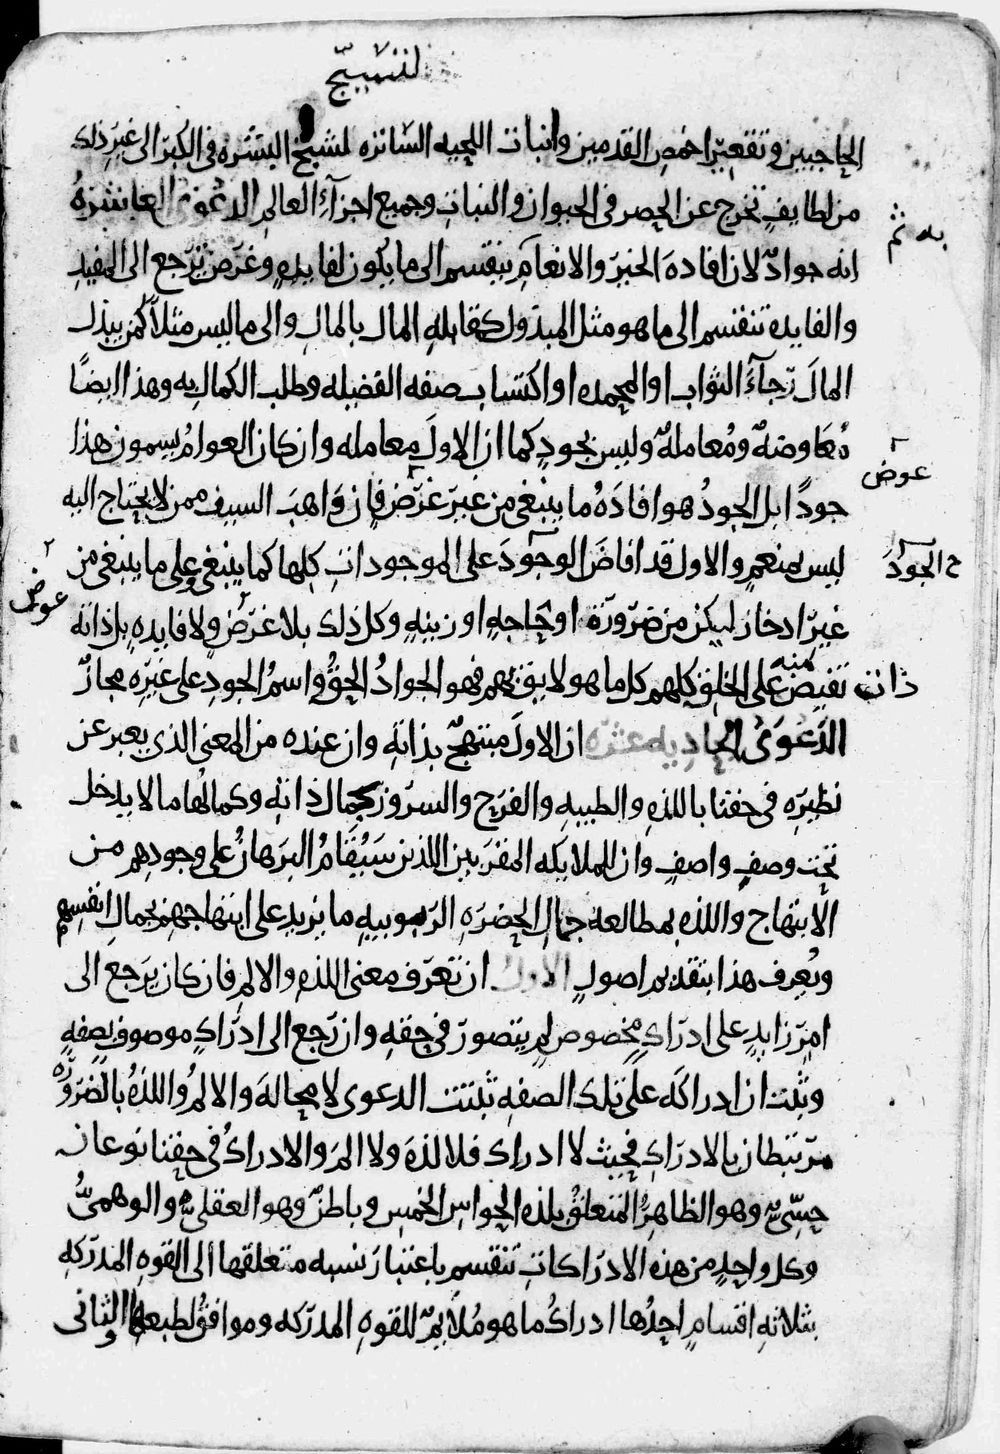 لتشبيح
الحاجبين وتقعير اخمص القدمين وانبات اللحيه الساتره لتشبيح البشره في الكبر الى غير ذلك
من لطايف تخرج عن الحصر في الحيوان والنبات وجميع اجزآء العالم الدعوى العاشرة
انه جوادٌ لان افادة الخير والانعام به ينقسم الى ما يكون لفايدهٍ وغرض يرجع الى المفيد
به ثم
والفايده تنقسم الى ما هو مثل المبذول كمقابله المال بالمال والى ما ليس مثلاً كمن يبذل
المال رجآء الثواب او المحمده او اكتساب صفه الفضيله وطلب الكمال به وهذا ايضًا
مُعَاوضةٌ ومُعاملةٌ وليس بجودٍ كما ان الاول معامله وان كان العوامُ يسمون هذا
عوض
جودًا بل الجودُ هو افادَةُ ما ينبغي من غير غرض فان وَاهبَ السيف ممن لا يحتاج اليه
ليس بمنعم والاول قد افاضَ الوجودَ على الموجودات كلها كما ينبغي وعلى ما ينبغي من
ح الجودَ
غير ادخار ليكن من ضرورة او حاجهٍ او زينهٍ وكل ذلك بلا غرضٍ ولا فايدهٍ بل ذاته
عوض
تفيض منه على الخلق كلهم كل ما هو لايق بهم فهو الجوادُ الحقُّ واسمُ الجودِ على غيره مجازٌ
ذات
الدَعْوَىٰ الحاديه عشره ان الاولَ مبتهجٌ بذاته وان عنده من المعنى الذي يعبر عن
نظيره في حقنا باللذه والطيبه والفرح والسرور بجمال ذاته وكمالها ما لا يدخل
تحت وصفِ واصفٍ وان للملايكه المقربين اللذين سَيُقَامُ البرهانُ على وجودهم من
الابتهاج واللذه بمطالعة جمال الحضره الربوبيه ما يزيد على ابتهاجهم بجمال انفسهم
ويُعرف هذا بتقديم اصولٍ الاول ان تعرّف معنى اللذه والالم فان كان يرجع الى
امرٍ زايدٍ على ادراكٍ مخصوص لم يتصور في حقه وان رجع الى ادراكٍ موصوف بصفهٍ
وثبت ان ادراكَه على تلك الصفه ثبتت الدعوى لا محالة والالمُ واللذهُ بالضروره
مرتبطان بالادراك فحيث لا ادراك فلا لذة ولا الم والادراكُ في حقنا نوعان
حسيٌّ وهو الظاهرُ المتعلقُ بلذه الحواس الخمس وباطنٌ وهو العقليُّ والوهميُّ
وكل واحدٍ من هذه الادراكات تنقسم باعتبار نسبه متعلقها الى القوه المدركه
بثلاثهِ اقسامٍ احدُها ادراكُ ما هو مُلايمٌ للقوه المدركه وموافقٌ لطبعها والثاني